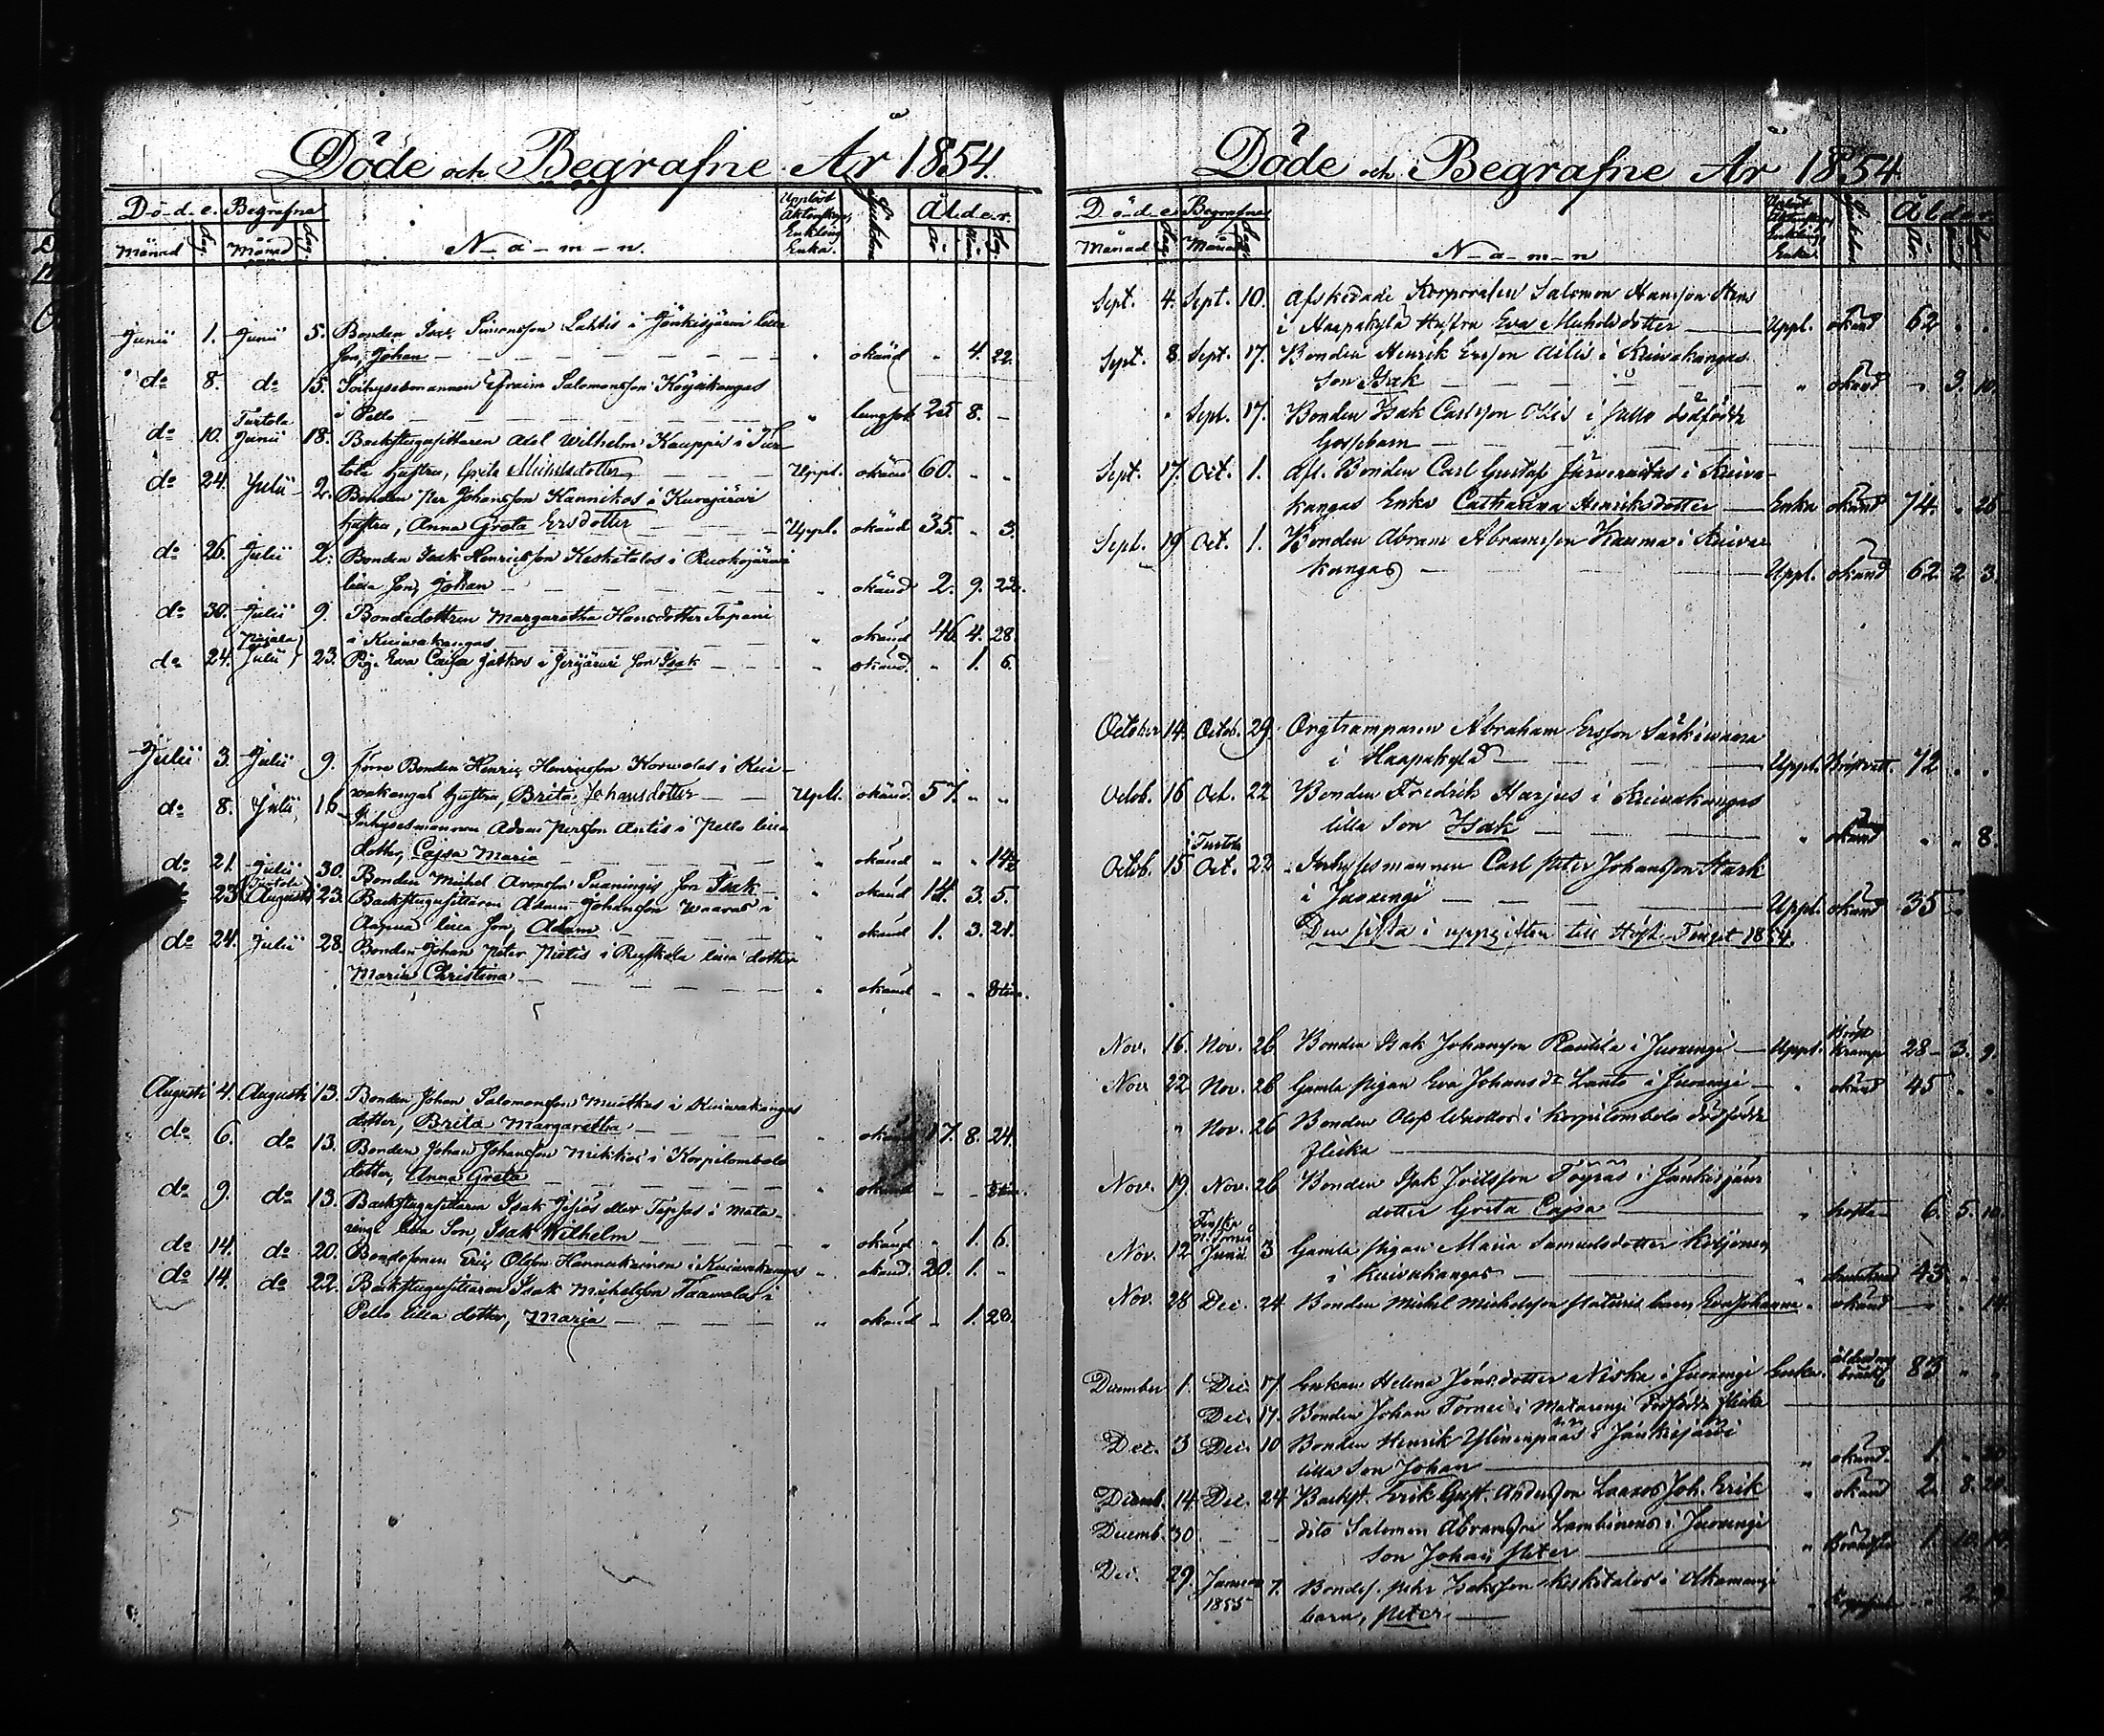 Döde och Begrafne År 1854.
Död-e. Begrafne
Upplöst Äktenskap, Enkling Enka.
Sjukdom
Ålder.
Månad dag. Månad dag. N-a-m-n. År. Mån. dag.
Junii 1. Junii 5. Bonden Isac Simonsson Lahtis i Jänkisjärvi lilla
son, Johan " okänd " 4. 22.
do 8. do 15. Inhysesmannen Efraim Salomonsson
i Pello " lungsot 25 8. -
Turtola
do 10. Junii 18. Backstugusittaren Axel Wilhelm Kauppis i Tur-
tola hustru, Greta Michelsdotter Uppl. okänd 60. " "
do 24. Julii 2. Bonden Per Johansson Kannikos i Kuresjärvi
hustru, Anna Greta Ersdotter Uppl. okänd 35. " 3.
do 26. Julii 2. Bonden Isak Henricsson Keskitalos i Ruokojärvi
lilla son, Johan " okänd 2. 9. 22.
do 30. Julii 9. Bondedottren Margaretha Hansdotter Tapani
i Kuivakangas " okänd 46. 4. 28.
Pajala
do 24. Julii 23. Pig. Eva Cajsa Jatkos i Jerijärvi son Isak " okänd " 1. 6.
Julii 3. Julii 9. Förre Bonden Henric Henricsson Korvolas i Kui-
wakangas hustru, Brita Johansdotter Uppl. okänd 57. " "
do 8. Julii 16. Inhysesmannen Adam Persson Antis i Pello lilla
dotter, Cajsa Maria " okänd " " 14½
do 21. Julii 30. Bonden Michel Aronsson Puaningis son Isak " okänd 14. 3. 5.
Turtola
23 Augusti 23. Backstugusittaren Adam Johansson Waaras i
lilla son, Adam " okänd 1. 3. 21.
do 24. Julii 28. Bonden Johan Peter Pietis i Ruskola lilla dotter
Maria Christina " okänd " " 8 tim.
Augusti 4. Augusti 13. Bonden Johan Salomonsson Muotkas i Kuivakangas
dotter, Brita Margaretha " okänd 17. 8. 24.
do 6. do 13. Bonden Johan Johansson Mikkos i Korpilombolo
dotter, Anna Greta " okänd - - tim.
do 9. do 13. Backstugusittaren Isak Jesiös eller Tepsas i Mata-
rengi lilla Son, Isak Wilhelm " okänd " 1. 6.
do 14. do 20. Bondesonen Eric Olsson Hannukainen i Kuivakangas " okänd. 20. 1. -
do 14. do 22. Backstugusittaren Isak Michelsson Taawolas i
Pello lilla dotter, Maria " okänd " 1. 28.
Döde och Begrafne År 1854
Död-e. Begrafne
Upplöst Äktenskap, Enkling, Enka
Ålder
Månad dag Månad dag N-a-m-n År
Sept. 4. Sept. 10. Afskedade Korporalen Salomon Hansson Stens
i Haapakylä Hustru Eva Michelsdotter Uppl. okänd 62 " "
Sept. 8. Sept. 17. Bonden Henrik Ersson Ailis i Kuivakangas
Son Isak " okänd " 3. 10.
" Sept. 17. Bonden Isak Carlsson Ollis i Pello dödfödde
Gossebarn
Sept. 17. Oct. 1. Afl. Bonden Carl Gustaf Järvenaitas i Kuiva-
kangas Enka Catharina Henriksdotter Enka okänd 74. " 26
Sept. 19 Oct. 1. Bonden Abram Abramsson Kauma i Kuiva-
kangas Uppl. okänd 62 2 3.
October 14. Octob. 29. Orgtramparen Abraham Ersson Särkivaara
i Haapakylä Uppl. Bröstvatt. 72 " "
Octob. 16 Oct. 22 Bonden Fredrik Harjus i Kuivakangas
lilla Son Isak " okänd " " 8.
i Turtola
Octob. 15 Oct. 22 Inhysesmannen Carl Peter Johansson Stark
i Juoxengi Uppl. okänd 35 "
Den sista i uppgiften till Höst-Tinget 1854.
Nov. 16. Nov. 26 Bonden Isak Johansson Rautila i Juoxengi Uppl. Bröst Kramp 28 - 3. 9.
Nov. 22 Nov. 26 Gamla Pigan Eva Johansdr Lanto i Juoxengi " okänd 45 " "
" Nov. 26 Bonden Olof i Korpilombolo dödfödda
flicka
Nov. 19. Nov. 26 Bonden Isak Töyräs i Jänkisjärvi
dotter Greta Cajsa " hosta 6. 5. 10.
Nov. 12 Junii 3 Gamla Pigan Maria Samuelsdotter
i Kuivakangas " 43 " "
Nov. 28 Dec. 24 Bonden Michel Michelsson barn Eva Johanna " okänd " " 14.
December 1. Dec. 17 Enkan Helena Jönsdotter Niska i Juoxengi Enka. ålderdoms bräckl. 83 " "
Dec. 17. Bonden Johan Tornei i Matarengi dödfödda flicka
Dec. 3 Dec. 10 Bonden Henrik Ylinenpääs i Jänkisjärvi
lilla Son Johan " okänd. 1. " 20
Decemb. 14 Dec. 24 Backst. Erik Gust. Andersson Laaxos Joh. Erik " okänd 2. 8. 20.
Decemb. 30 - - dito Salomon Abramsson Lambinens i Juoxengi
Son Johan Peter " 1. 10.
Dec. 29 Januari 7. Bondes. Pehr Isaksson Keskitalos i Alkamangi
1855 barn, Peter " 2. 9